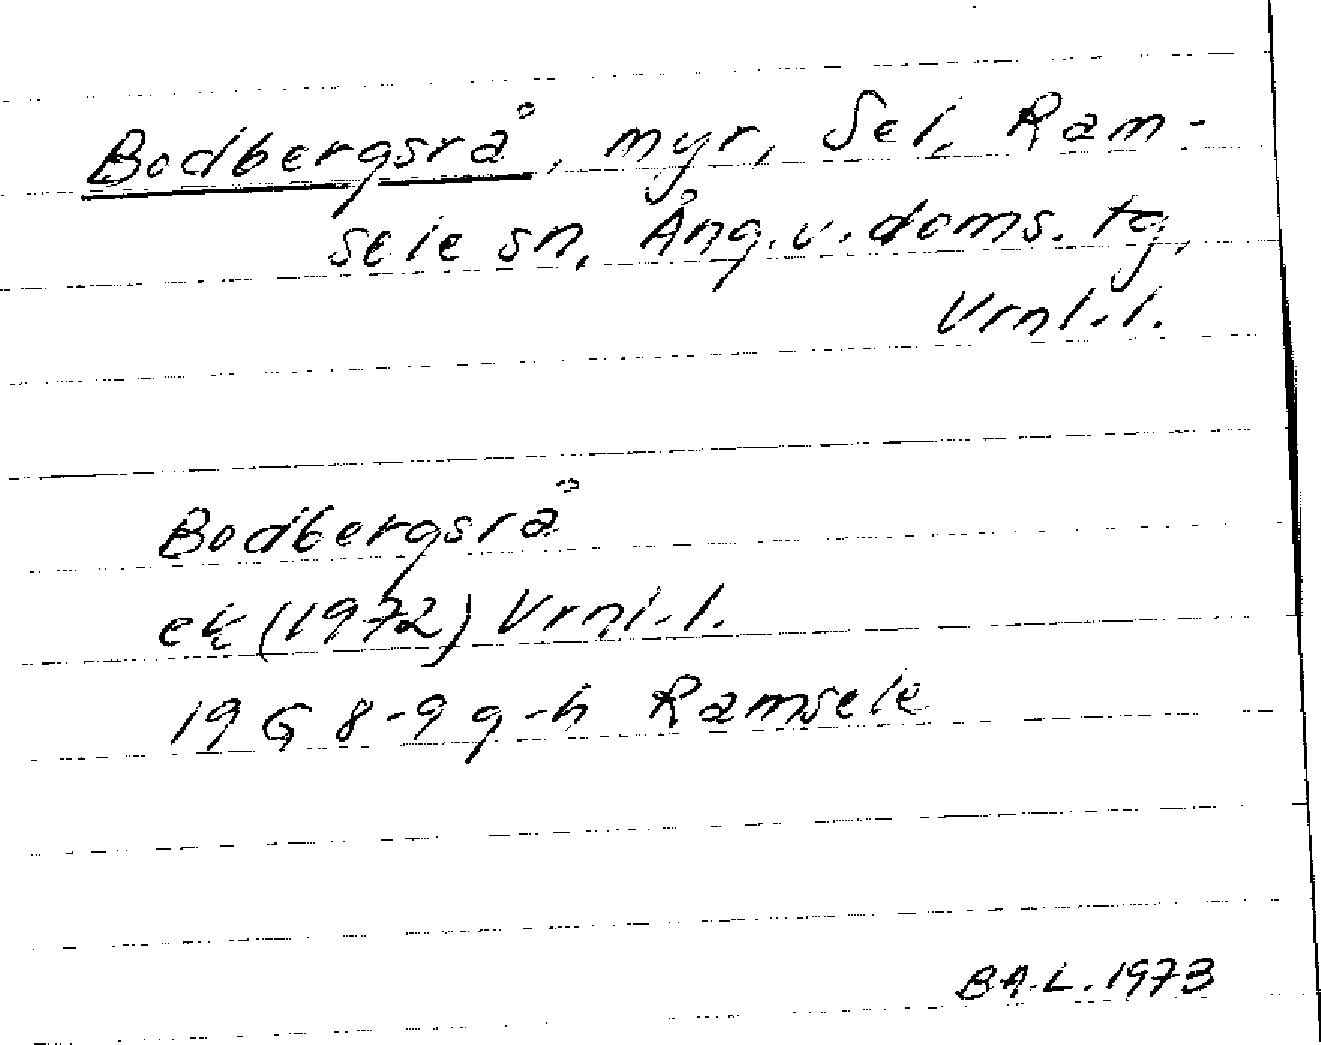 Bodbergsrå, myr, Sel, Ram-
sele sn, Ång.v.doms. tg,
Vrnl.l.
Bodbergsrå
ek (1972) Vrnl.l.
19 G 8-9 g-h Ramsele
B.A.L. 1973